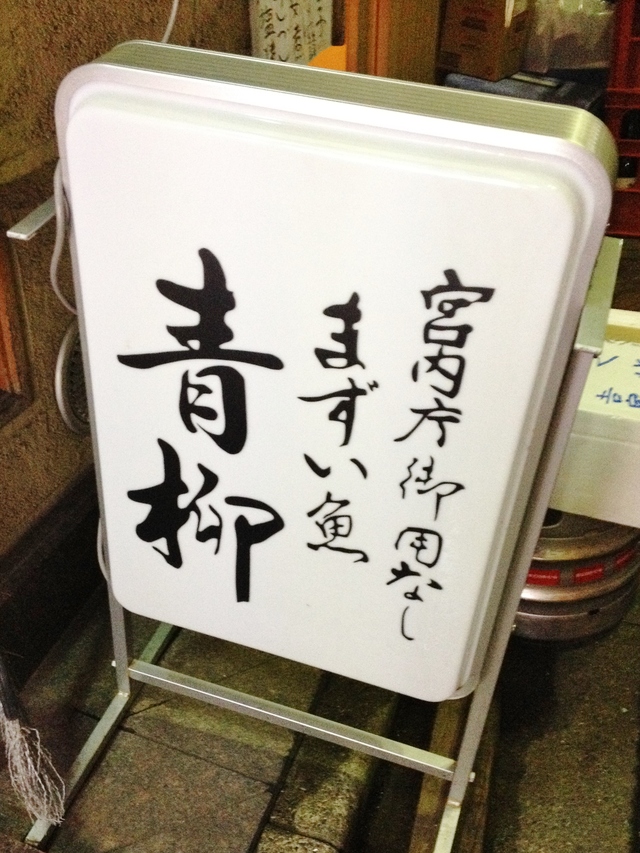 宮内庁御用なし
まずい魚
青柳